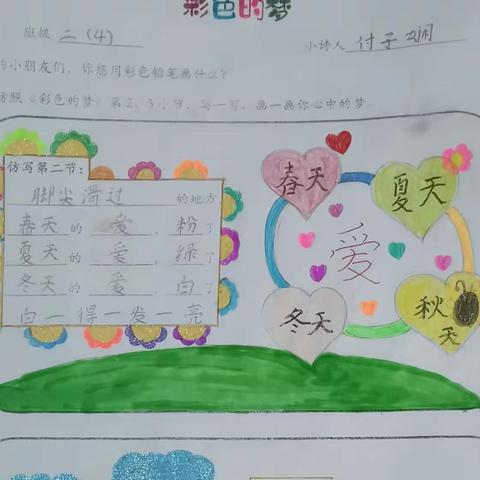 彩色的梦
班级 二(4) 小诗人 付子娴
的小朋友们,你想用彩色铅笔画什么?
仿照《彩色的梦》第2、3小节,写一写,画一画你心中的梦。
仿写第二节:
脚尖滑过 的地方
春天的 爱,粉了
夏天的 爱,绿了
冬天的 爱,白了
白一得一发一亮
春天
夏天
爱
冬天
秋天